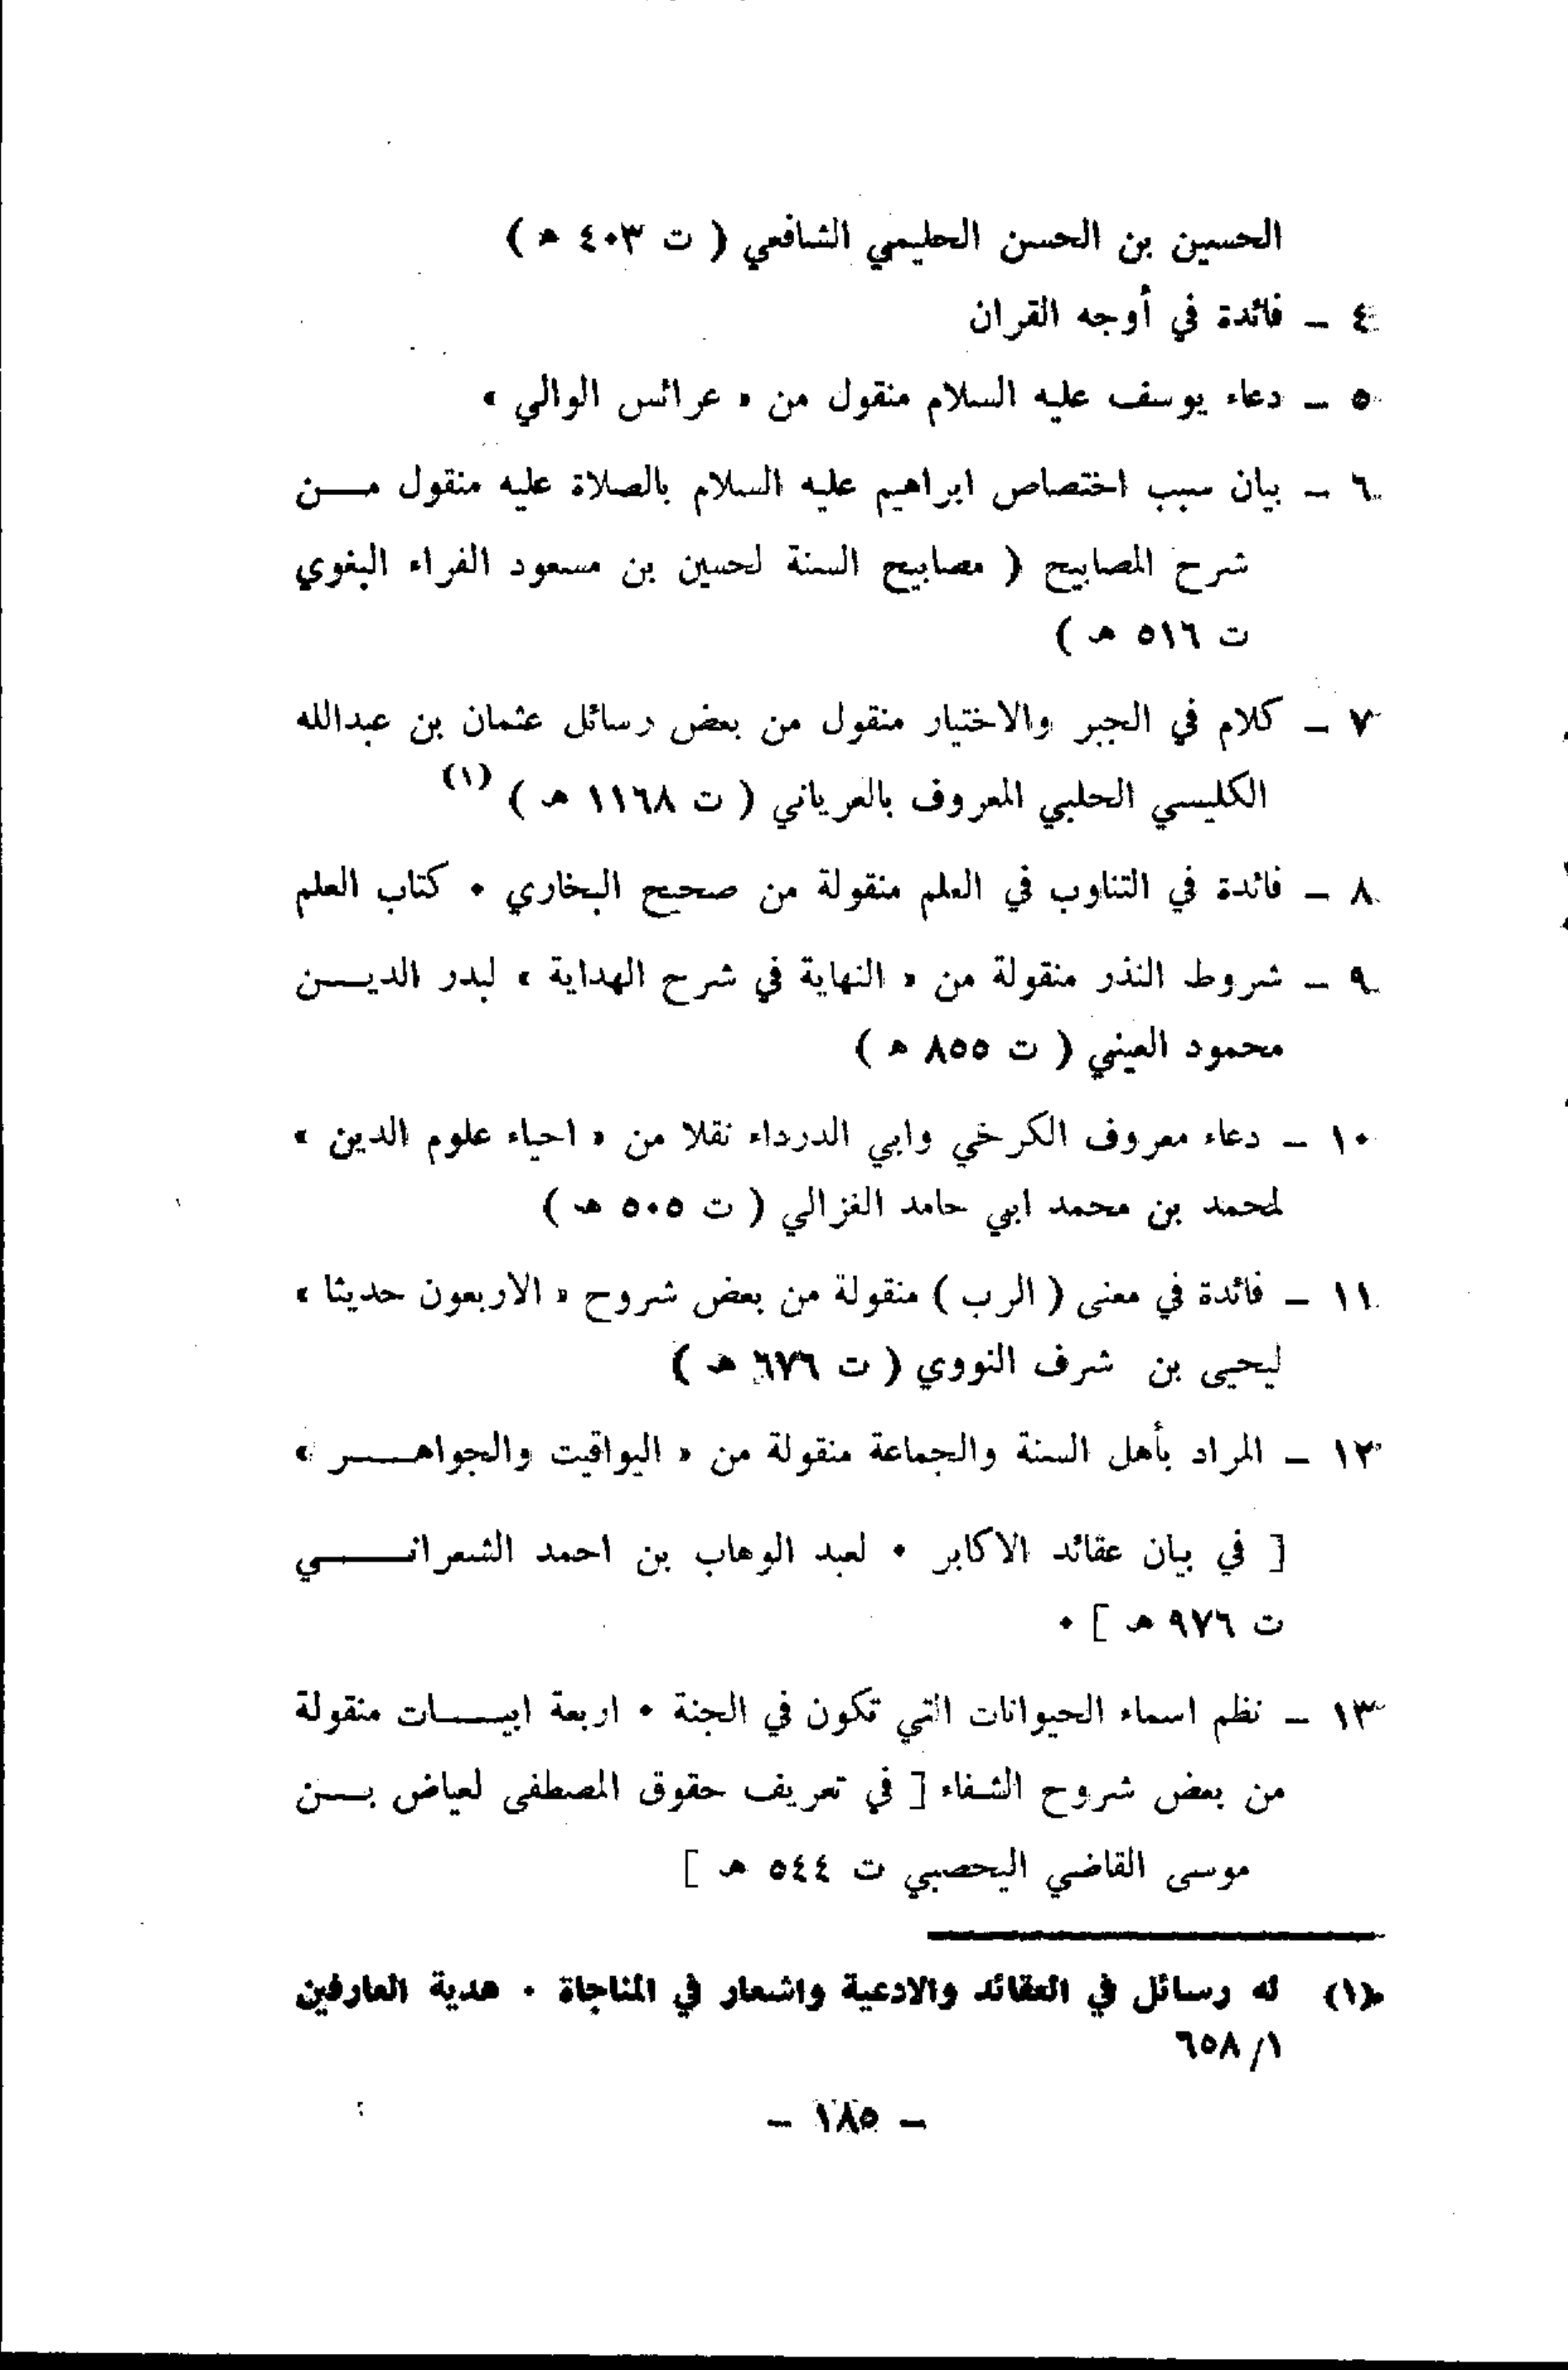 الحسين بن الحسن الحليمي الشافعي ( ت ٤٠٣ هـ )
٤ ـ فائدة في أوجه القران
٥ ـ دعاء يوسف عليه السلام منقول من « عرائس الوالي »
٦ ـ بيان سبب اختصاص ابراهيم عليه السلام بالصلاة عليه منقول مـــن
شرح المصابيح ( مصابيح السنة لحسين بن مسعود الفراء البغوي
ت ٥١٦ هـ )
٧ ـ كلام في الجبر والاختيار منقول من بعض رسائل عثمان بن عبدالله
الكليسي الحلبي المعروف بالعرياني ( ت ١١٦٨ هـ ) (١)
٨ ـ فائدة في التناوب في العلم منقولة من صحيح البخاري ٠ كتاب العلم
٩ ـ شروط النذر منقولة من « النهاية في شرح الهداية » لبدر الديـــن
محمود العيني ( ت ٨٥٥ هـ )
١٠ ـ دعاء معروف الكرخي وابي الدرداء نقلا من « احياء علوم الدين »
لمحمد بن محمد ابي حامد الغزالي ( ت ٥٠٥ هـ )
١١ ـ فائدة في معنى ( الرب ) منقولة من بعض شروح « الاربعون حديثا »
ليحيى بن شرف النووي ( ت ٦٧٦ هـ )
١٢ ـ المراد بأهل السنة والجماعة منقولة من « اليواقيت والجواهـــر »
[ في بيان عقائد الاكابر ٠ لعبد الوهاب بن احمد الشعرانـــي
ت ٩٧٦ هـ ] ٠
١٣ ـ نظم اسماء الحيوانات التي تكون في الجنة ٠ اربعة ابيـــات منقولة
من بعض شروح الشفاء [ في تعريف حقوق المصطفى لعياض بـــن
موسى القاضي اليحصبي ت ٥٤٤ هـ ]
(١) له رسائل في العقائد والادعية واشعار في المناجاة ٠ هدية العارفين
١/ ٦٥٨
ـ ١٨٥ ـ